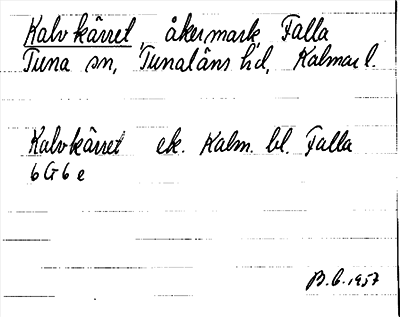 Kalvkärret, åkermark, Falla
Tuna sn, Tunaläns hd, Kalmar l.
Kalvkärret ek. Kalm. bl. Falla
6G6e
B.G. 1957